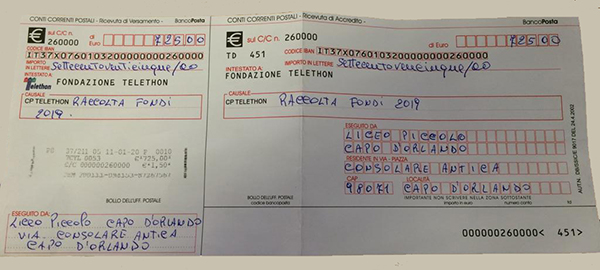 CONTI CORRENTI POSTALI - Ricevuta di Versamento - BancoPosta
€ sul C/C n. 260000 di Euro 725,00
CODICE IBAN IT37X0760103200000000260000
IMPORTO IN LETTERE Settecentoventicinque/00
INTESTATO A:
Telethon FONDAZIONE TELETHON
CAUSALE
CP TELETHON RACCOLTA FONDI
2019.
27/211 05 11-01-20 P 0010
VCYL 0053 €*725,00*
C/C 000000260000 €*1,50*
BOLLO DELL'UFF. POSTALE
ESEGUITO DA:
LICEO PICCOLO CAPO D'ORLANDO
VIA CONSOLARE ANTICA
CAPO D'ORLANDO
CONTI CORRENTI POSTALI - Ricevuta di Accredito - BancoPosta
€ sul C/C n. 260000 di Euro 725,00
TD 451
CODICE IBAN IT37X0760103200000000260000
IMPORTO IN LETTERE Settecentoventicinque/00
INTESTATO A:
FONDAZIONE TELETHON
CAUSALE
CP TELETHON RACCOLTA FONDI 2019
ESEGUITO DA
LICEO PICCOLO
CAPO D'ORLANDO
RESIDENTE IN VIA - PIAZZA
CONSOLARE ANTICA
CAP LOCALITÀ
98071 CAPO D'ORLANDO
BOLLO DELL'UFF. POSTALE
codice bancoposta
IMPORTANTE NON SCRIVERE NELLA ZONA SOTTOSTANTE
importo in euro numero conto td
000000260000< 451>
AUT.N. DB/SSIC/E 9017 DEL 24.4.2002